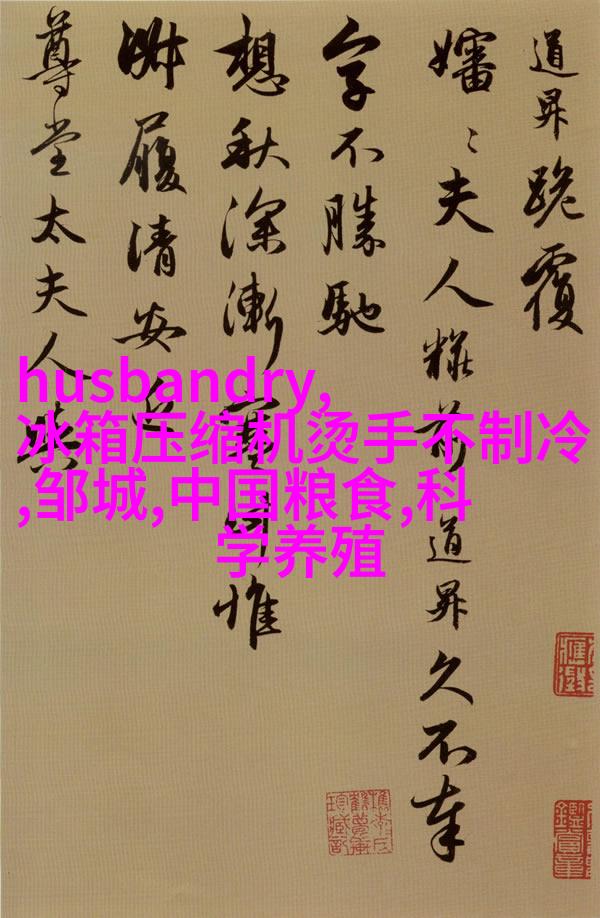 道昇跪覆
嬸〻夫人糚前道昇久不奉
字不勝馳
想秋深漸惟
淑履清安近
尊堂太夫人
husbandry,
冰箱压缩机烫手不制冷
,邹城,中国粮食,科
学养殖